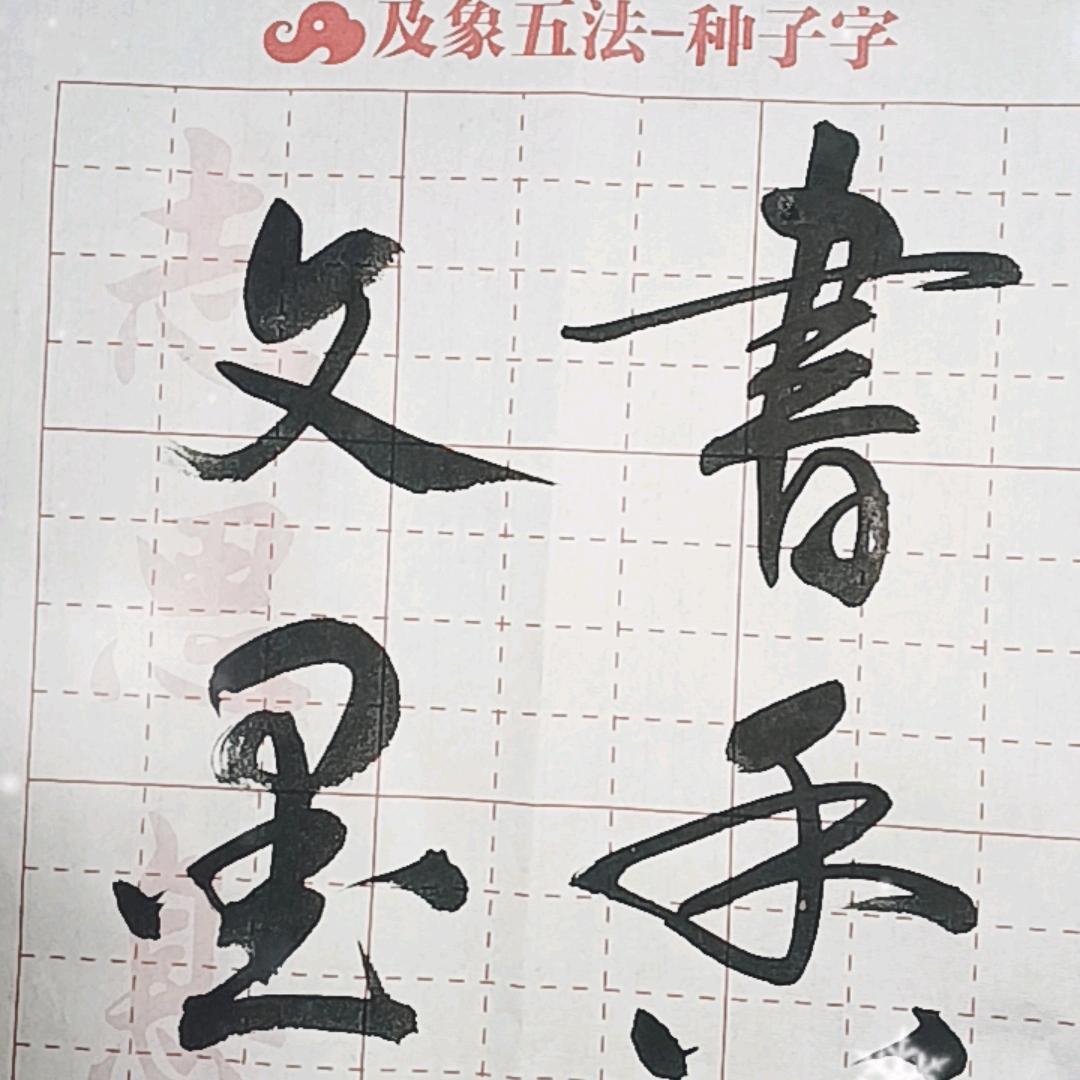 及象五法-种子字
書香
文墨